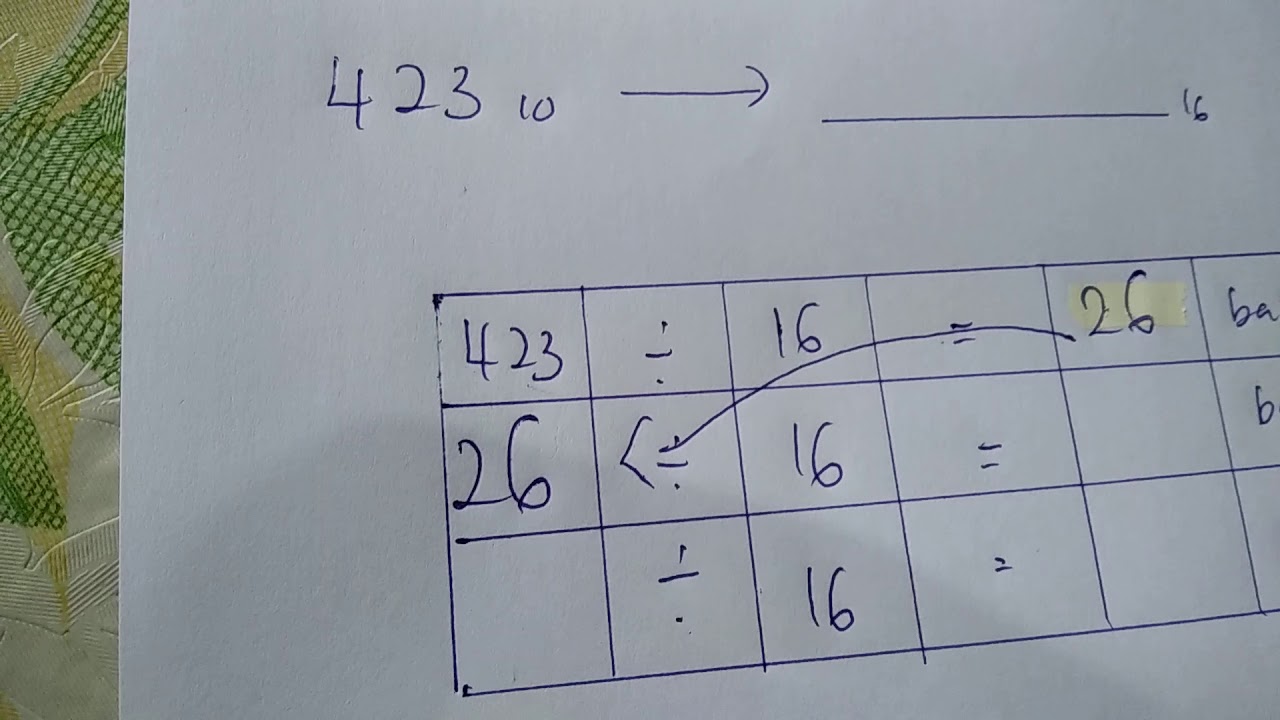 423 10 → ________ 16
423 ÷ 16 = 26 ba
26 ÷ 16 = b
÷ 16 =